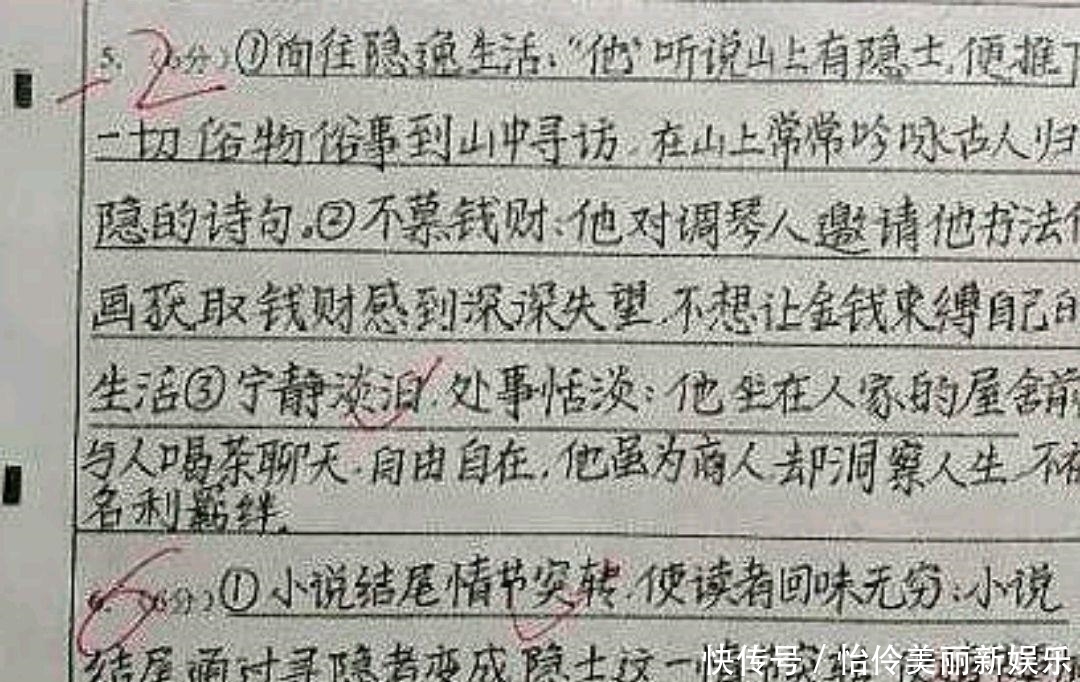 5. (6分) ①向往隐逸生活:“他”听说山上有隐士,便推
一切俗物俗事到山中寻访,在山上常常吟咏古人归
隐的诗句。②不慕钱财:他对调琴人邀请他书法
画获取钱财感到深深失望,不想让金钱束缚自己的
生活③宁静淡泊,处事恬淡:他坐在人家的屋舍前
与人喝茶聊天,自由自在,他虽为商人却洞察人生,不
名利羁绊。
-2
6. (6分) ①小说结尾情节突转,使读者回味无穷:小说
6
结尾通过寻隐者变成隐士这一
快传号 / 怡伶美丽新娱乐